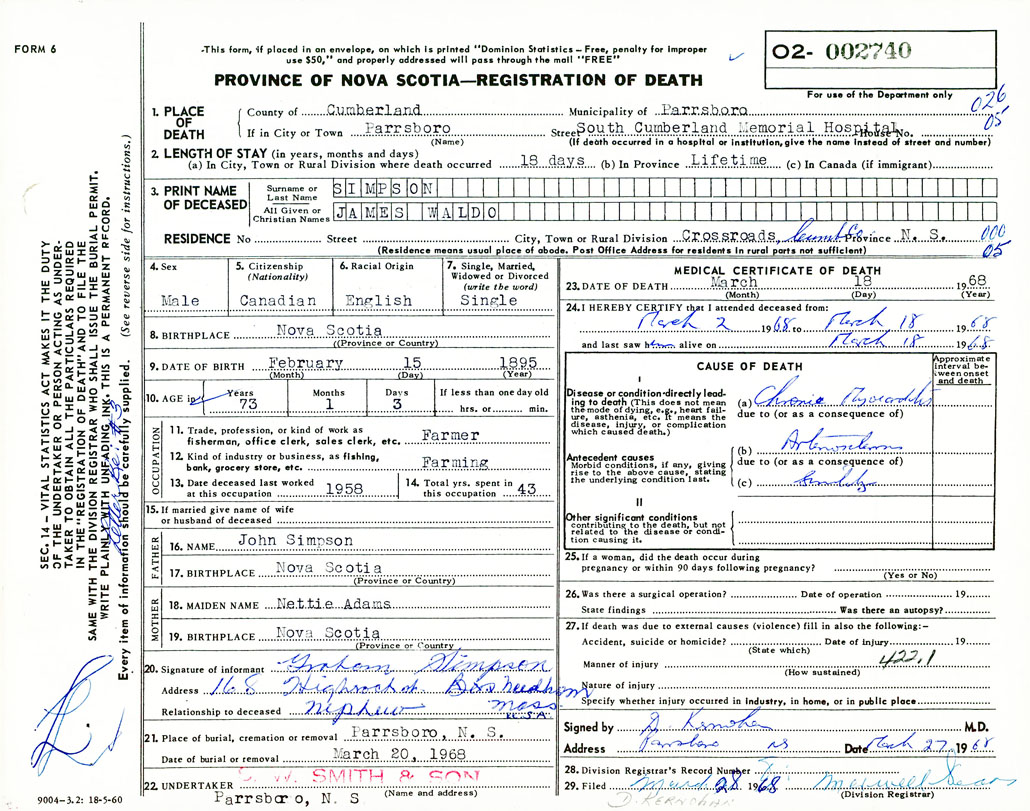 FORM 6
-This form, if placed in an envelope, on which is printed "Dominion Statistics – Free, penalty for improper
use $50," and properly addressed will pass through the mail "FREE"
PROVINCE OF NOVA SCOTIA—REGISTRATION OF DEATH
02- 002740
For use of the Department only
026
05
1. PLACE OF DEATH
County of Cumberland Municipality of Parrsboro
If in City or Town Parrsboro Street South Cumberland Memorial Hospital House No.
(Name) (If death occurred in a hospital or institution, give the name instead of street and number)
2. LENGTH OF STAY (in years, months and days)
(a) In City, Town or Rural Division where death occurred 18 days (b) In Province Lifetime (c) In Canada (if immigrant)
3. PRINT NAME OF DECEASED
Surname or Last Name SIMPSON
All Given or Christian Names JAMES WALDO
RESIDENCE No Street City, Town or Rural Division Crossroads, Cumb Co. Province N. S. 000
05
(Residence means usual place of abode. Post Office Address for residents in rural parts not sufficient)
4. Sex
Male
5. Citizenship
(Nationality)
Canadian
6. Racial Origin
English
7. Single, Married,
Widowed or Divorced
(write the word)
Single
8. BIRTHPLACE Nova Scotia
(Province or Country)
9. DATE OF BIRTH February 15 1895
(Month) (Day) (Year)
10. AGE in Years 73 Months 1 Days 3 If less than one day old
hrs. or min.
OCCUPATION
11. Trade, profession, or kind of work as
fisherman, office clerk, sales clerk, etc. Farmer
12. Kind of industry or business, as fishing,
bank, grocery store, etc. Farming
13. Date deceased last worked
at this occupation 1958
14. Total yrs. spent in
this occupation 43
15. If married give name of wife
or husband of deceased
FATHER
16. NAME John Simpson
17. BIRTHPLACE Nova Scotia
(Province or Country)
MOTHER
18. MAIDEN NAME Nettie Adams
19. BIRTHPLACE Nova Scotia
(Province or Country)
20. Signature of informant Graham Simpson
Address 168 Highrock st. Needham
Mass
U.S.A.
Relationship to deceased Nephew
21. Place of burial, cremation or removal Parrsboro, N. S.
Date of burial or removal March 20, 1968
22. UNDERTAKER W. SMITH & SON
Parrsboro, N. S. (Name and address)
MEDICAL CERTIFICATE OF DEATH
23. DATE OF DEATH March 18 1968
(Month) (Day) (Year)
24. I HEREBY CERTIFY that I attended deceased from:
March 2 1968 to March 18 1968
and last saw him alive on March 18 1968
CAUSE OF DEATH
Approximate
interval be-
tween onset
and death
I
Disease or condition directly lead-
ing to death (This does not mean
the mode of dying, e.g., heart fail-
ure, asthenia, etc. It means the
disease, injury, or complication
which caused death.)
(a) Chronic Myocarditis
due to (or as a consequence of)
Antecedent causes
Morbid conditions, if any, giving
rise to the above cause, stating
the underlying condition last.
(b)
due to (or as a consequence of)
(c) Senility
II
Other significant conditions
contributing to the death, but not
related to the disease or condi-
tion causing it.
25. If a woman, did the death occur during
pregnancy or within 90 days following pregnancy?
(Yes or No)
26. Was there a surgical operation? Date of operation 19
State findings Was there an autopsy?
27. If death was due to external causes (violence) fill in also the following:-
Accident, suicide or homicide? Date of injury 19
(State which)
Manner of injury 422.1
(How sustained)
Nature of injury
Specify whether injury occurred in Industry, in home, or in public place
Signed by D. Kernohan M.D.
Address Parrsboro NS Date March 27, 1968
28. Division Registrar's Record Number
29. Filed March 28 1968 Maxwell
(Division Registrar)
D. KERNOHAN
SEC. 14 – VITAL STATISTICS ACT MAKES IT THE DUTY
OF THE UNDERTAKER OR PERSON ACTING AS UNDER-
TAKER TO OBTAIN ALL THE PARTICULARS REQUIRED
IN THE "REGISTRATION OF DEATH" AND TO FILE THE
SAME WITH THE DIVISION REGISTRAR WHO SHALL ISSUE THE BURIAL PERMIT.
WRITE PLAINLY WITH UNFADING INK. THIS IS A PERMANENT RECORD.
Every item of information should be carefully supplied. (See reverse side for instructions.)
9004-3.2: 18-5-60